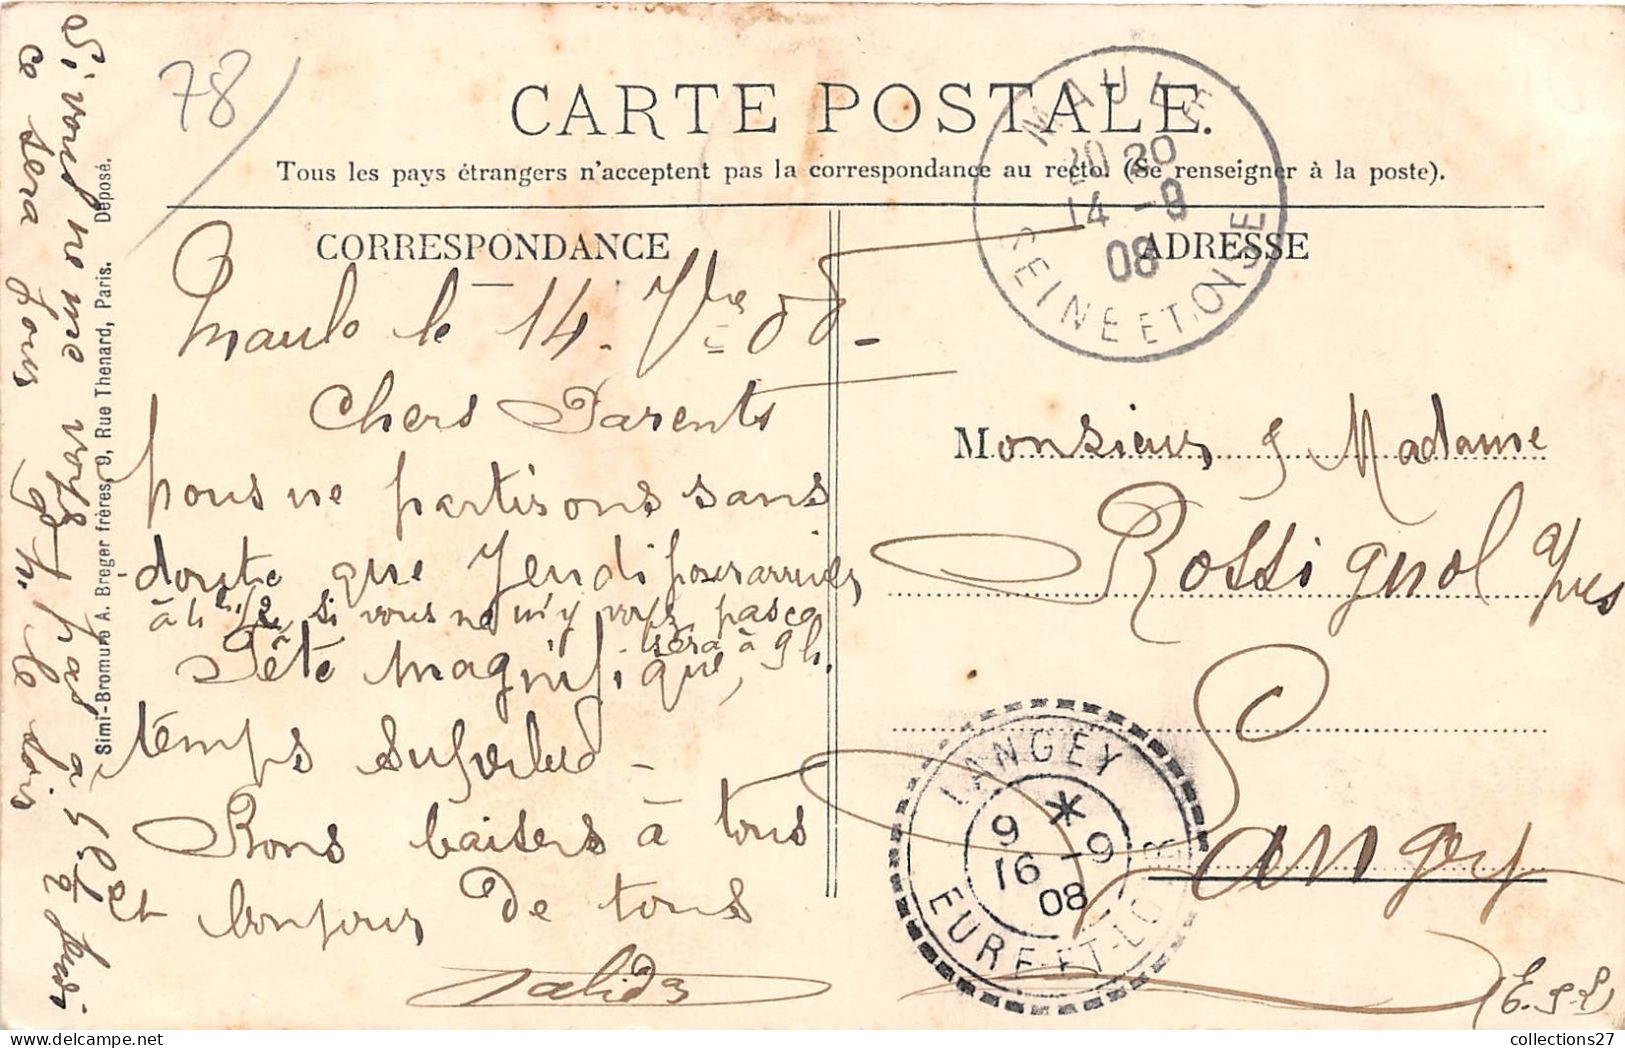 78
CARTE POSTALE.
Tous les pays étrangers n'acceptent pas la correspondance au recto. (Se renseigner à la poste).
CORRESPONDANCE
ADRESSE
MAULE
20 20
14 - 9
08
SEINE ET-OISE
Maule le 14. 7bre 08-
Chers Parents
nous ne partirons sans
doute que Jeudi pour arriver
à 4h 1/2, si vous ne m'y voyez pas ce
sera à 9 h.
Fête magnifique,
temps superbe -
Bons baisers à tous
et bonjour de tous
Monsieur & Madame
Rossignol Yves
Langey
(E. & L)
LANGEY
9 *
16 - 9
08
EURE-ET-LOIR
Si vous ne me voyez pas à 4h 1/2 jeudi
ce sera pour 9 h. le soir
Simi-Bromure A. Breger frères, 9, Rue Thenard, Paris. Déposé.
collections27